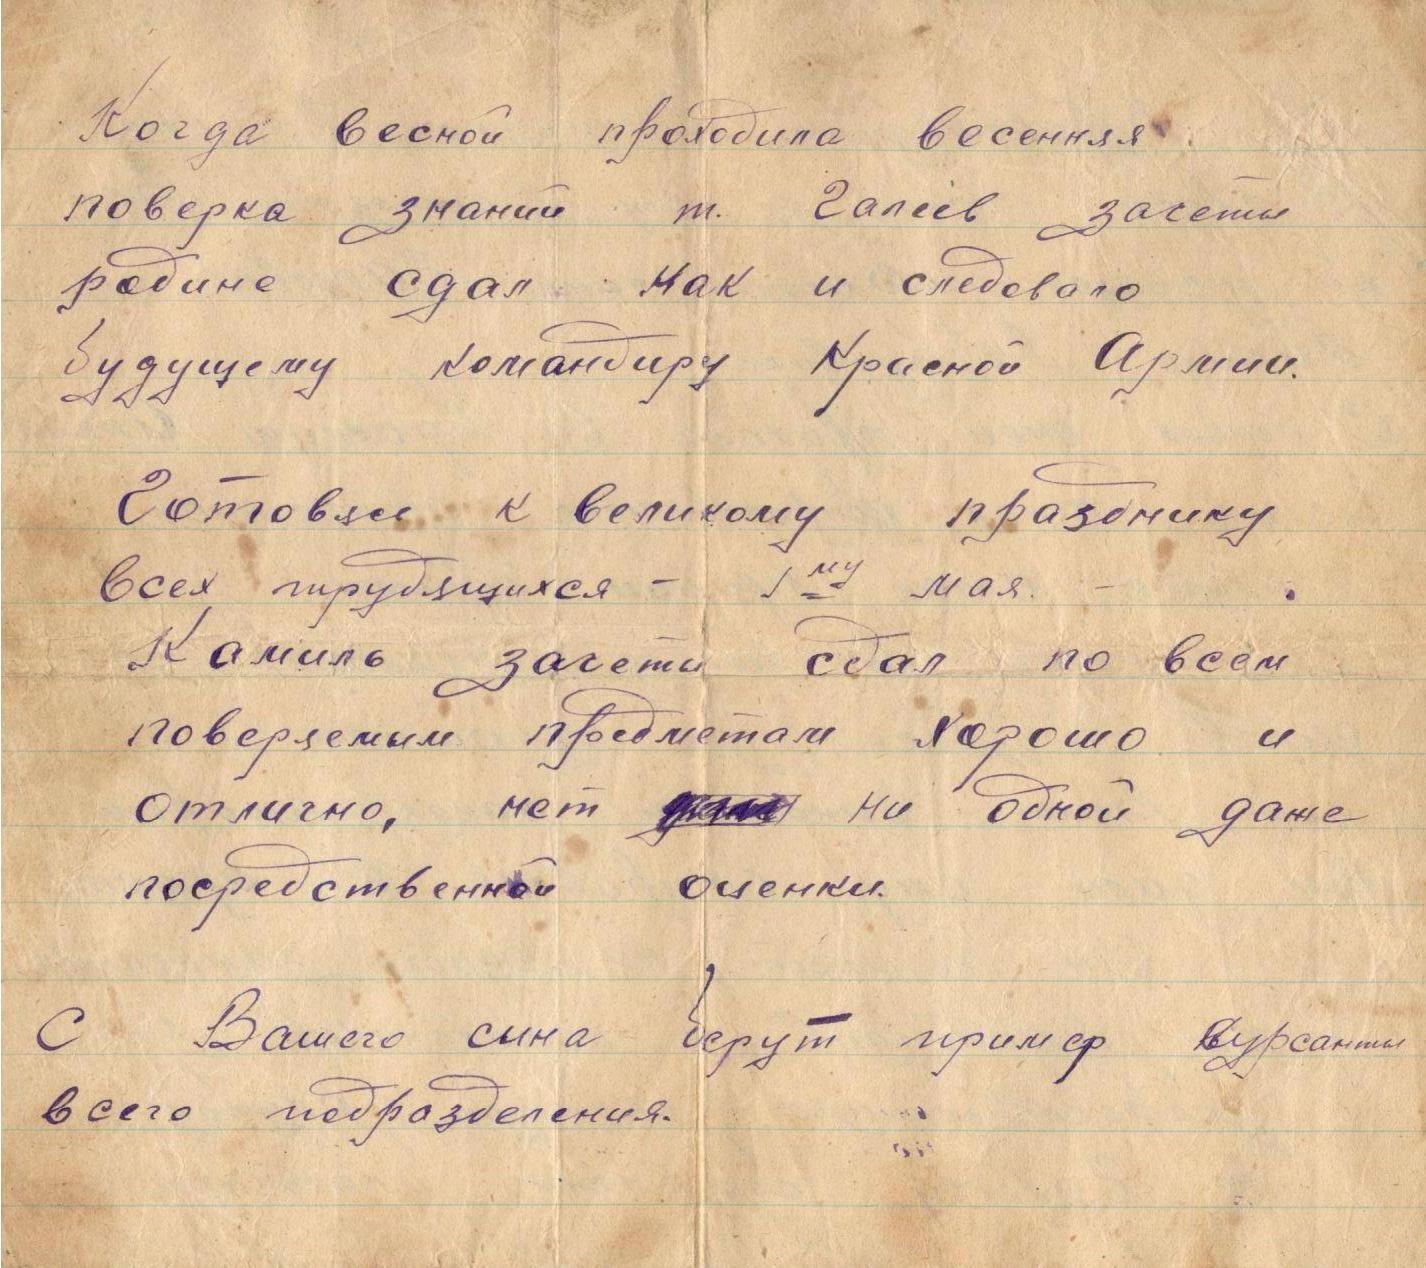 Когда весной проходила весенняя
поверка знаний т. Галеев зачеты
родине сдал как и следовало
будущему командиру Красной Армии.
Готовясь к великому празднику
всех трудящихся - 1му мая. -
Камиль зачеты сдал по всем
поверяемым предметам хорошо и
отлично, нет ни одной даже
посредственной оценки.
С Вашего сына берут пример курсанты
всего подразделения.